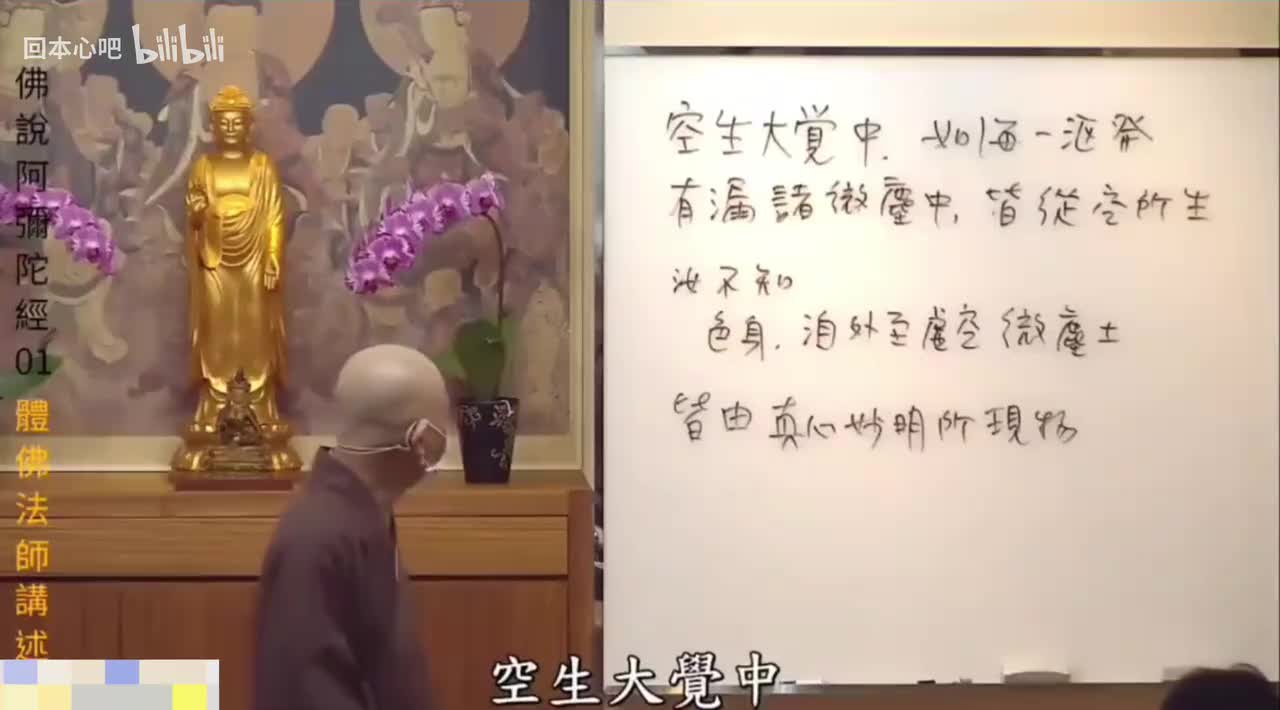 回本心吧 bilibili
佛說阿彌陀經01 體佛法師講述
空生大覺中. 如海一漚發
有漏諸微塵中, 皆從空所生
汝不知
色身. 洎外至虛空微塵土
皆由真心妙明所現物
空生大覺中